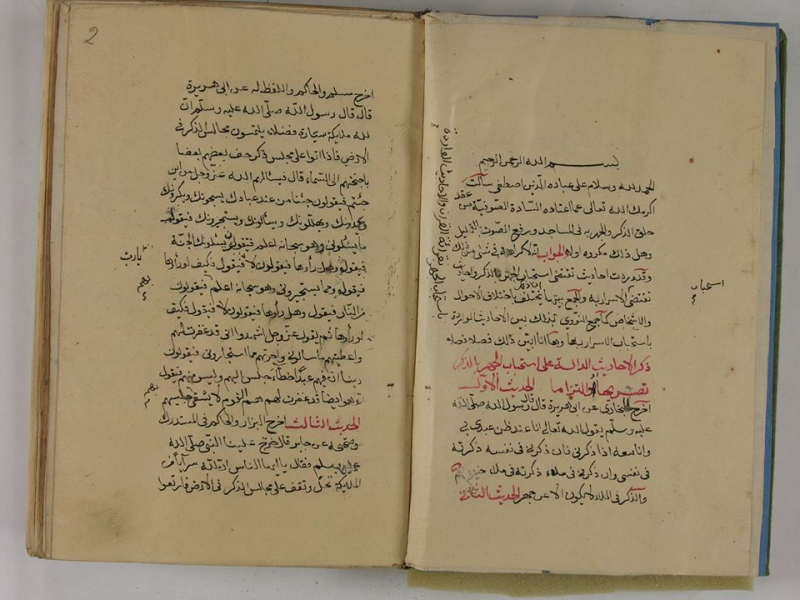 بسم الله الرحمن الرحيم
الحمد لله وسلام على عباده الذين اصطفى سألت
اكرمك الله تعالى عما اعتاده السادة الصوفية من عقد
حلق الذكر والجهر به في المساجد ورفع الصوت بالتهليل
وهل ذلك مكروه اولا الجواب انه لا كراهة في شئ من ذلك
وقد وردت احاديث تقتضي استحباب الجهر بالذكر واحاديث
تقتضي الاسرار به والجمع بينهما ان ذلك يختلف باختلاف الاحوال
والاشخاص كما جمع النووي بمثل ذلك بين الاحاديث الواردة
باستحباب الجهر بقراءة القران والاحاديث الواردة
باستحباب الاسرار بها وها انا ابين ذلك فصلا فصلا
ذكر الاحاديث الدالة على استحباب الجهر بالذكر
تصريحا او التزاما الحديث الاول
اخرج البخاري عن ابي هريرة قال قال رسول الله صلى الله
عليه وسلم يقول الله تعالى انا عند ظن عبدي بي
وانا معه اذا ذكرني فان ذكرني في نفسه ذكرته
في نفسي وان ذكرني في ملاء ذكرته في ملاء خير
والذكر في الملاء لا يكون الا عن جهر الحديث الثاني
استحباب
2
اخرج مسلم والحاكم واللفظ له عن ابي هريرة
قال قال رسول الله صلى الله عليه وسلم ان
لله ملايكة سيارة وفضلاء يلتمسون مجالس الذكر في
الارض فاذا اتوا على مجلس ذكر حف بعضهم بعضا
باجنحتهم الى السماء قال فيسالهم الله عز وجل من اين
جئتم فيقولون جئنا من عند عبادك يسبحونك ويكبرونك
ويحمدونك ويهللونك ويسألونك ويستجيرونك فيقول
ما يسئلوني وهو سبحانه اعلم فيقولون يسئلونك الجنة
فيقول وهل رأوها فيقولون لا فيقول فكيف لو رأوها
فيقول ومما يستجيروني وهو سبحانه اعلم فيقولون
من النار فيقول وهل رأوها فيقولون لا فيقول فكيف
لو رأوها ثم يقول عز وجل اشهدوا اني قد غفرت لهم
واعطيتهم ما سالوني واجرتهم مما استجاروني فيقولون
ربنا ان فيهم عبدا خطاء جلس اليهم وليس منهم فيقول
وهو ايضا قد غفرت له هم القوم لا يشقى جليسهم
الحديث الثالث اخرج البزار والحاكم في المستدرك
وصححه عن جابر قال خرج علينا النبي صلى الله
عليه وسلم فقال يا ايها الناس ان لله سرايا من
الملايكة تحل وتقف على مجالس الذكر في الارض فارتعوا
يا رب
بهم
بهم